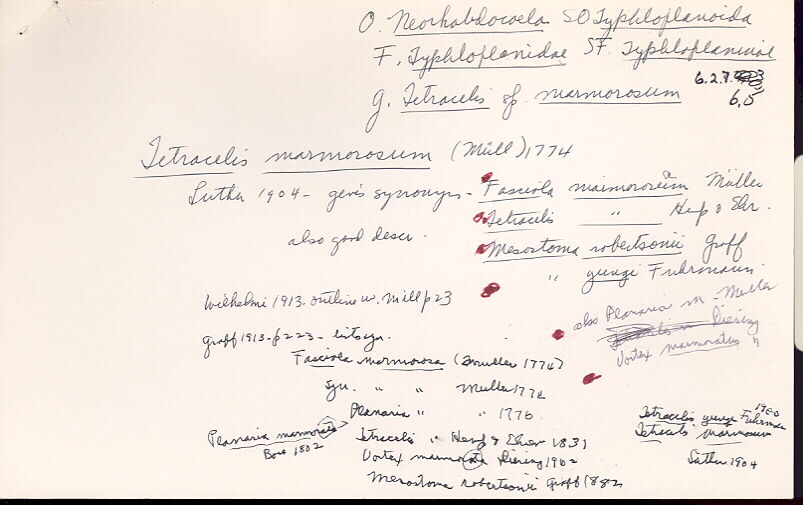 O. Neorhabdocoela SO Typhloplanoida
F. Typhloplanidae SF. Typhloplaninae
6.2.7.
g. Tetracelis sp. marmorosum 6.5
Tetracelis marmorosum (Müll) 1774
Luther 1904 - gives synonyms - Fasciola marmorosum Müller
Tetracelis " Hemp & Ehr.
also good descr. Mesostoma robertsonii Graff
" yungi Fuhrmann
Wilhelmi 1913. outline w. Mill p 23
also Planaria m - Muller
Diesing
Graff 1913 - p 223 - lists syn. Vortex marmoratus "
Fasciola marmorosa (Muller 1774)
Syn. " " Muller 1774
Planaria " " 1776
Planaria marmorata
Bosc 1802
Tetracelis " Hemp & Ehr 1831
Vortex marmorata Diesing 1962
Mesostoma robertsonii Graff 1882
Tetracelis yungi Fuhrman 1900
Tetracelis marmorosum
Luther 1904